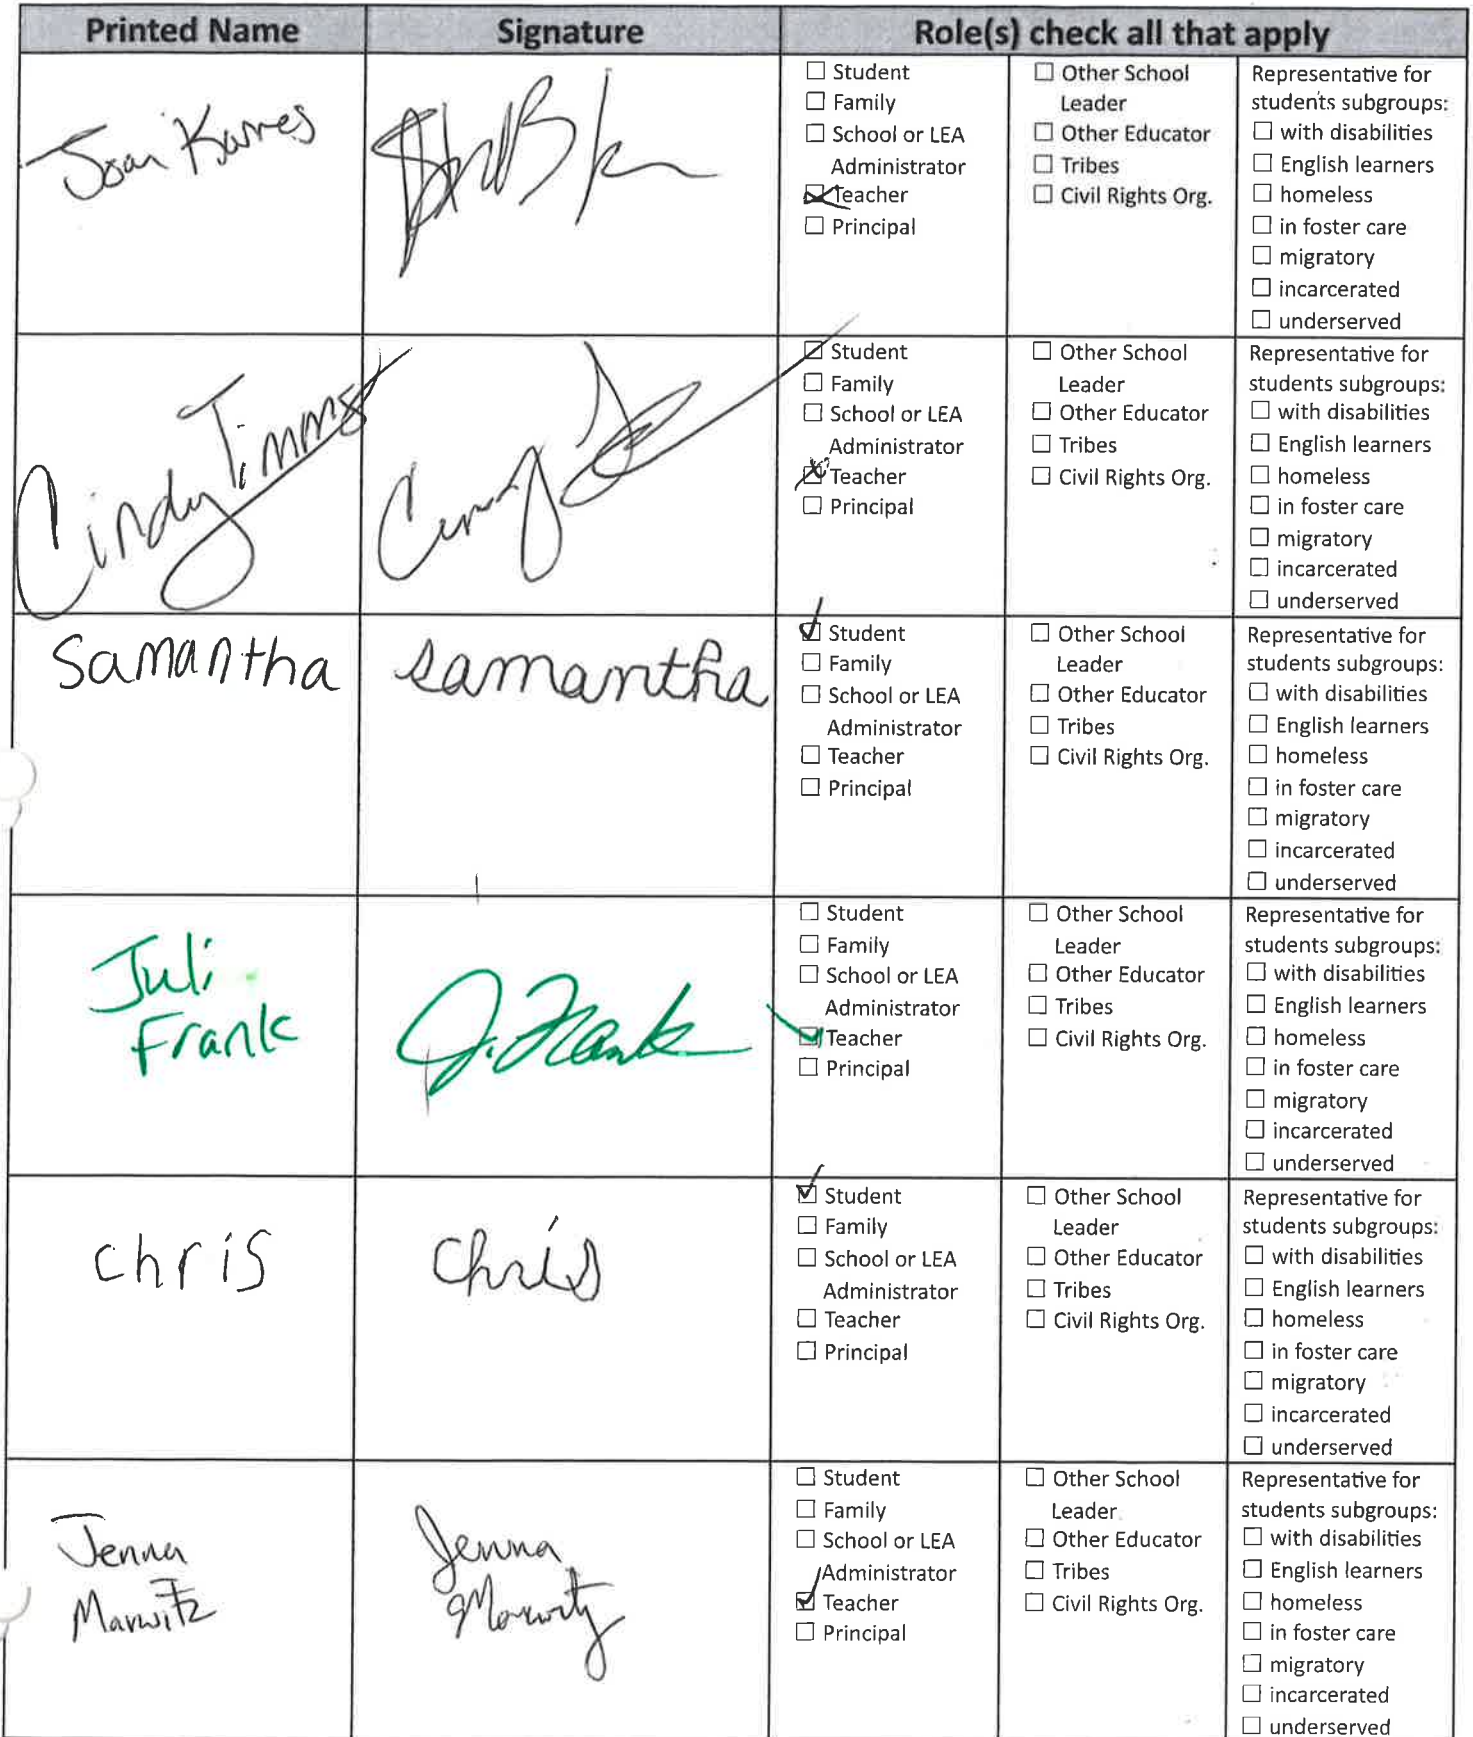 Printed Name Signature Role(s) check all that apply
Joan Karnes
☐ Student
☐ Family
☐ School or LEA
Administrator
☒ Teacher
☐ Principal
☐ Other School
Leader
☐ Other Educator
☐ Tribes
☐ Civil Rights Org.
Representative for
students subgroups:
☐ with disabilities
☐ English learners
☐ homeless
☐ in foster care
☐ migratory
☐ incarcerated
☐ underserved
Cindy Timms
☐ Student
☐ Family
☐ School or LEA
Administrator
☒ Teacher
☐ Principal
☐ Other School
Leader
☐ Other Educator
☐ Tribes
☐ Civil Rights Org.
Representative for
students subgroups:
☐ with disabilities
☐ English learners
☐ homeless
☐ in foster care
☐ migratory
☐ incarcerated
☐ underserved
Samantha samantha
☑ Student
☐ Family
☐ School or LEA
Administrator
☐ Teacher
☐ Principal
☐ Other School
Leader
☐ Other Educator
☐ Tribes
☐ Civil Rights Org.
Representative for
students subgroups:
☐ with disabilities
☐ English learners
☐ homeless
☐ in foster care
☐ migratory
☐ incarcerated
☐ underserved
Juli
Frank
J. Frank
☐ Student
☐ Family
☐ School or LEA
Administrator
☑ Teacher
☐ Principal
☐ Other School
Leader
☐ Other Educator
☐ Tribes
☐ Civil Rights Org.
Representative for
students subgroups:
☐ with disabilities
☐ English learners
☐ homeless
☐ in foster care
☐ migratory
☐ incarcerated
☐ underserved
chris chris
☑ Student
☐ Family
☐ School or LEA
Administrator
☐ Teacher
☐ Principal
☐ Other School
Leader
☐ Other Educator
☐ Tribes
☐ Civil Rights Org.
Representative for
students subgroups:
☐ with disabilities
☐ English learners
☐ homeless
☐ in foster care
☐ migratory
☐ incarcerated
☐ underserved
Jenna
Marwitz
Jenna
Marwitz
☐ Student
☐ Family
☐ School or LEA
Administrator
☑ Teacher
☐ Principal
☐ Other School
Leader
☐ Other Educator
☐ Tribes
☐ Civil Rights Org.
Representative for
students subgroups:
☐ with disabilities
☐ English learners
☐ homeless
☐ in foster care
☐ migratory
☐ incarcerated
☐ underserved